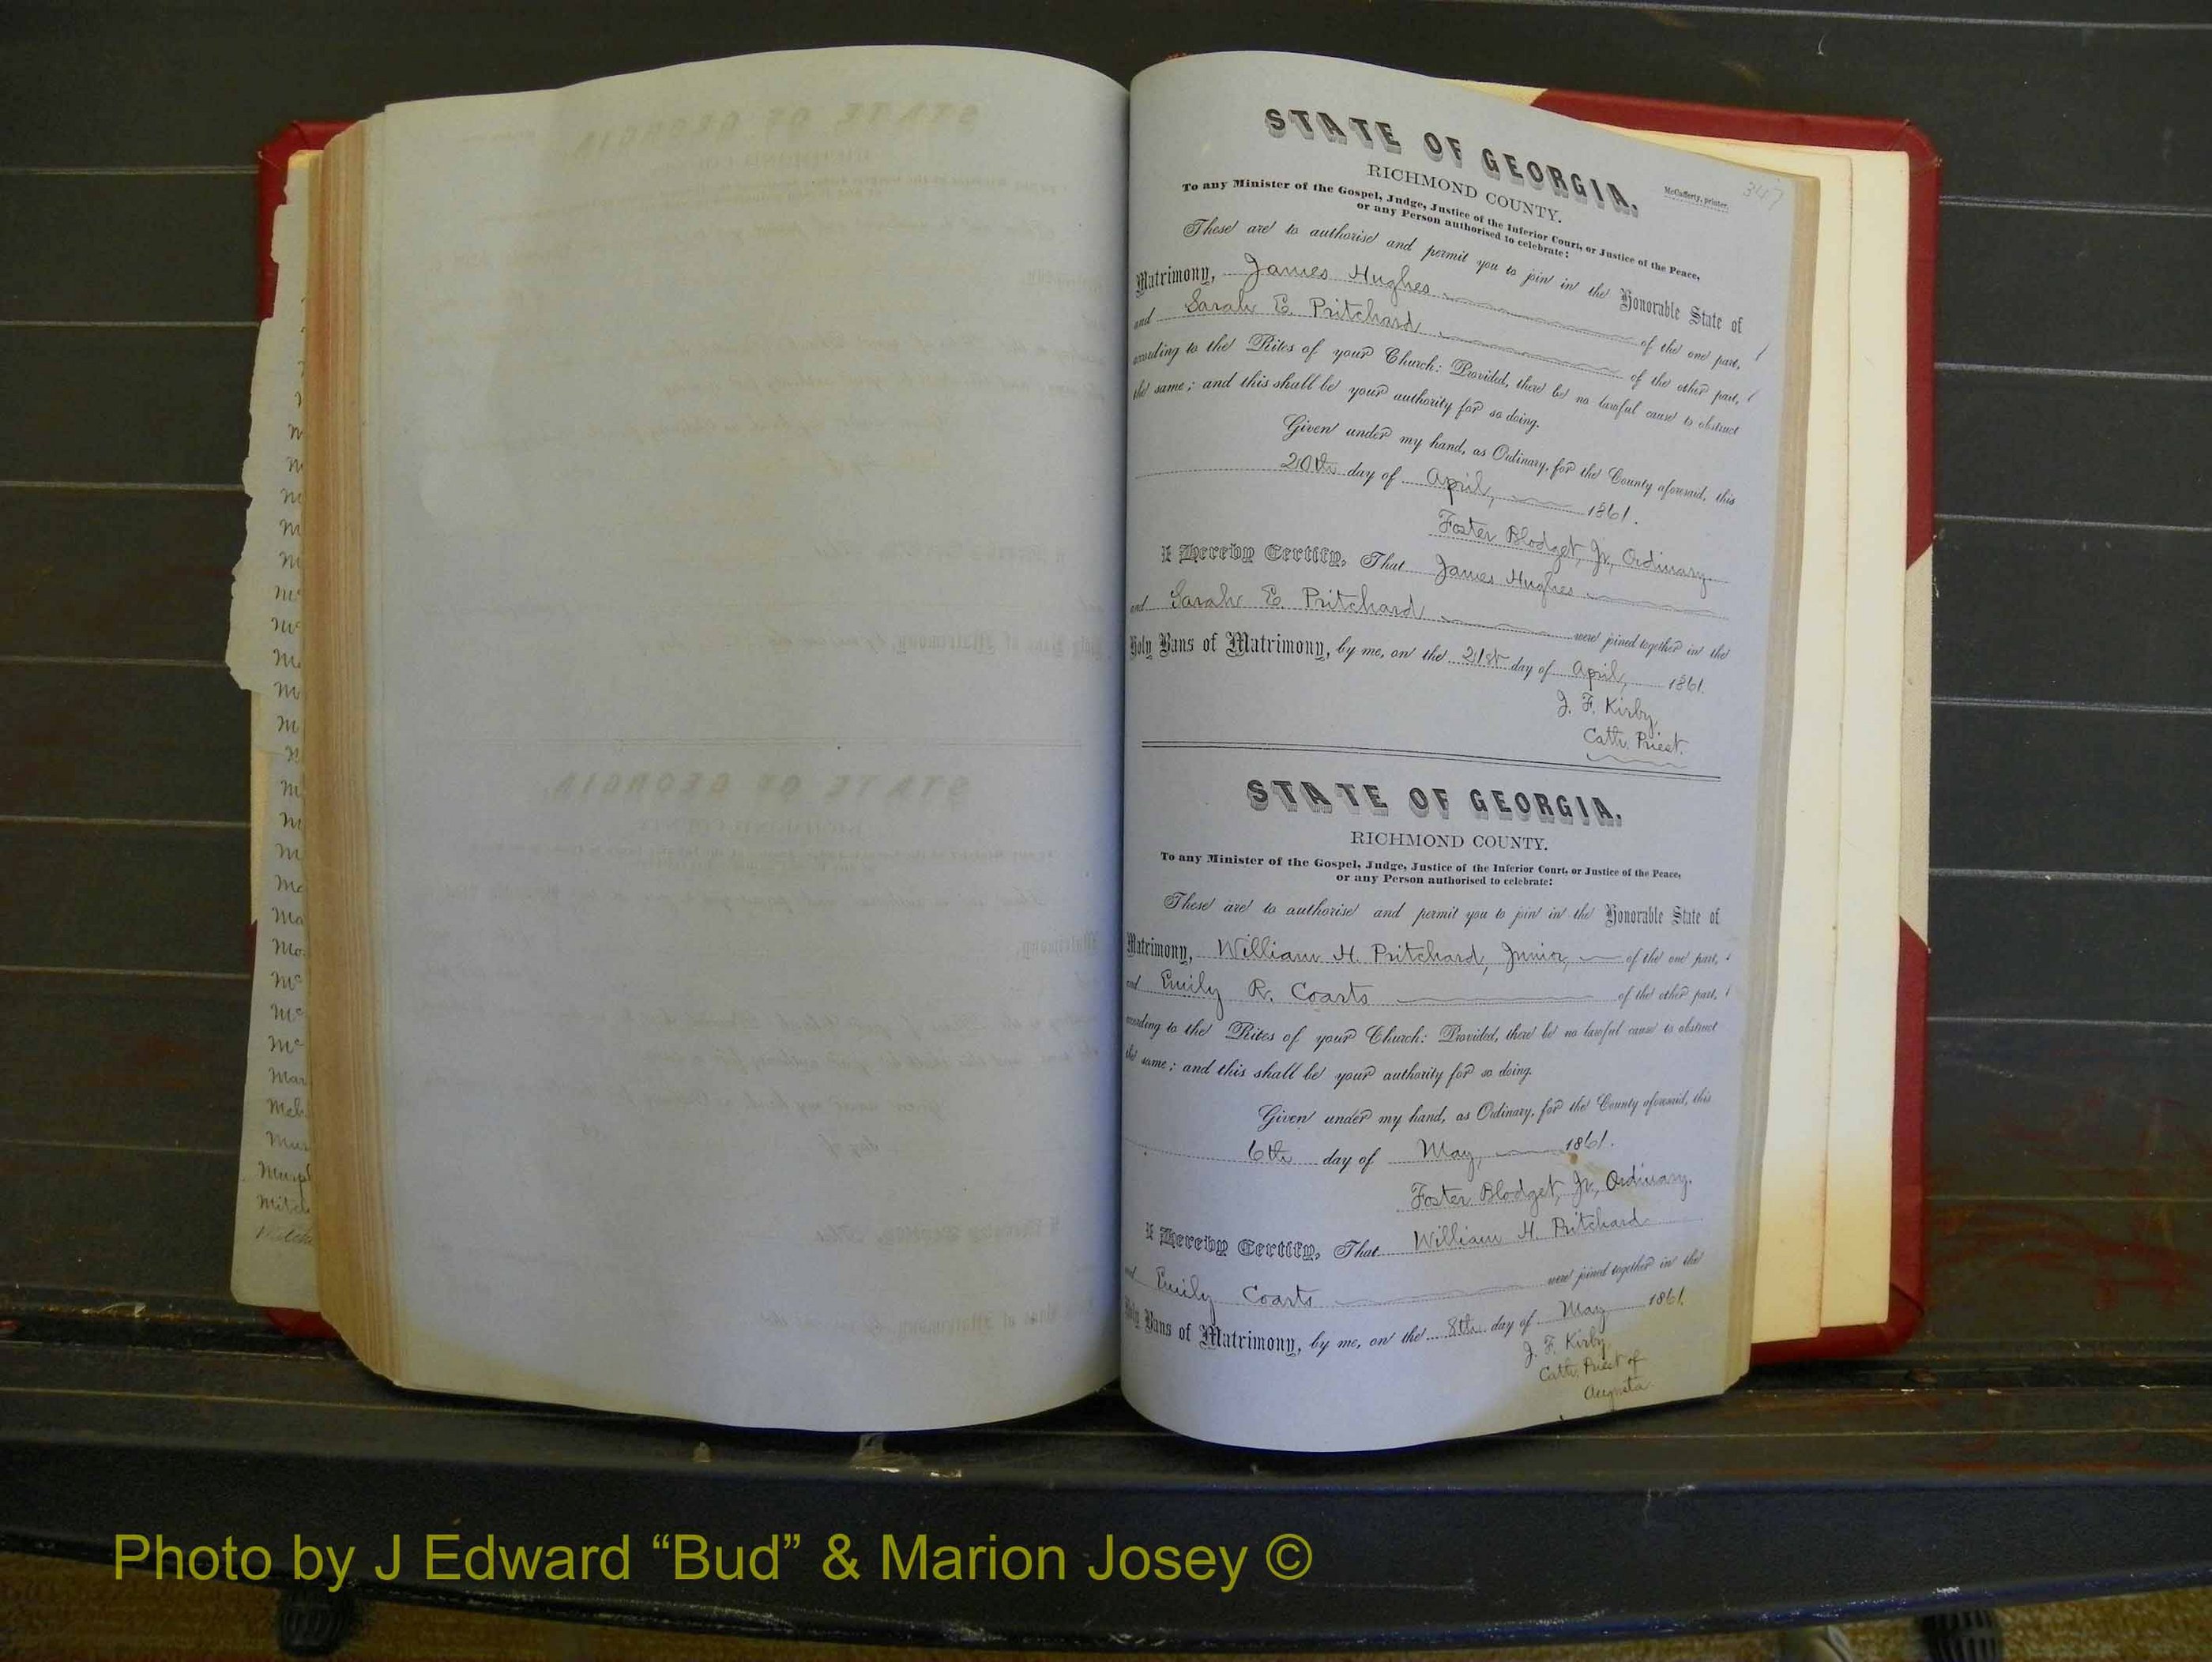 347
STATE OF GEORGIA.
McCafferty, printer.
RICHMOND COUNTY.
To any Minister of the Gospel, Judge, Justice of the Inferior Court, or Justice of the Peace,
or any Person authorised to celebrate:
These are to authorise and permit you to join in the Honorable State of
Matrimony, James Hughes of the one part,
and Sarah E. Pritchard of the other part,
according to the Rites of your Church: Provided, there be no lawful cause to obstruct
the same; and this shall be your authority for so doing.
Given under my hand, as Ordinary, for the County aforesaid, this
20th day of April, 1861.
Foster Blodget, Jr, Ordinary.
I Hereby Certify, That James Hughes
and Sarah E. Pritchard were joined together in the
Holy Bans of Matrimony, by me, on the 21st day of April, 1861.
J. F. Kirby,
Cath. Priest.
STATE OF GEORGIA.
RICHMOND COUNTY.
To any Minister of the Gospel, Judge, Justice of the Inferior Court, or Justice of the Peace,
or any Person authorised to celebrate:
These are to authorise and permit you to join in the Honorable State of
Matrimony, William H. Pritchard, Junior, of the one part,
and Emily R. Coarts of the other part,
according to the Rites of your Church: Provided, there be no lawful cause to obstruct
the same; and this shall be your authority for so doing.
Given under my hand, as Ordinary, for the County aforesaid, this
6th day of May, 1861.
Foster Blodget, Jr, Ordinary.
I Hereby Certify, That William H. Pritchard
and Emily Coarts were joined together in the
Holy Bans of Matrimony, by me, on the 8th day of May 1861.
J. F. Kirby,
Cath. Priest of
Augusta.
Photo by J Edward “Bud” & Marion Josey ©